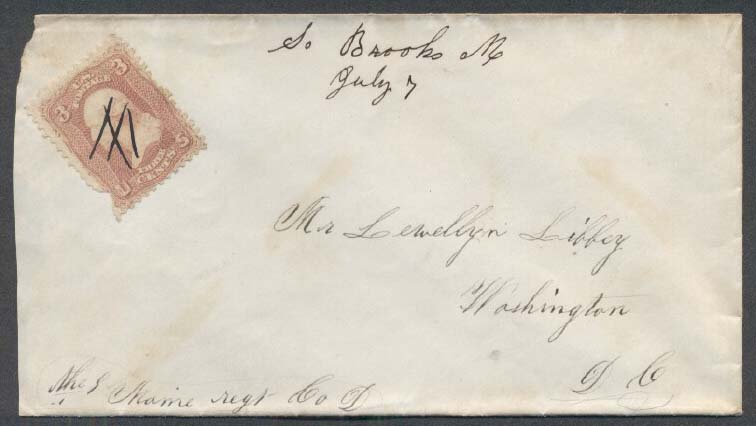 So Brooks M
July 7
U.S. POSTAGE
3 3
U S
THREE CENTS
Mr Lewellyn Libbey
Washington
D C
The
Maine regt Co D